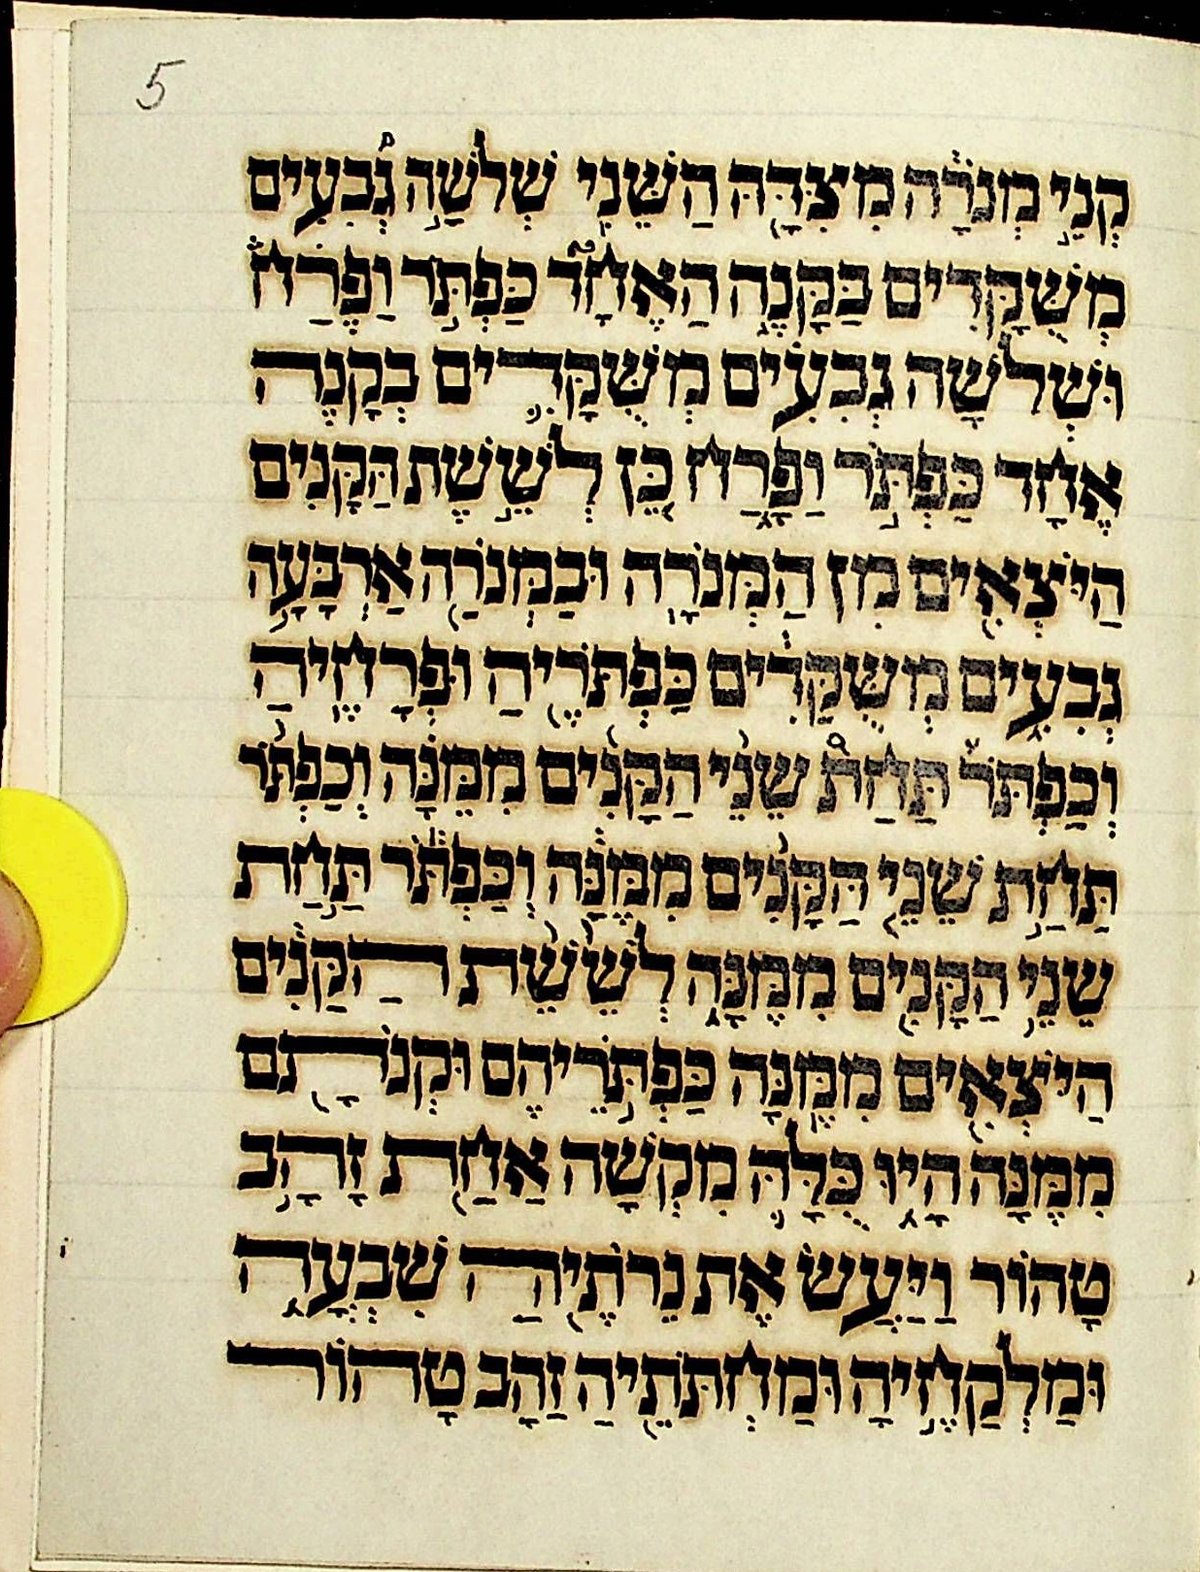 5
קְנֵ֣י מְנֹרָ֔ה מִצִּדָּ֖הּ הַשֵּׁנִֽי שְׁלֹשָׁ֣ה גְ֠בִעִים
מְֽשֻׁקָּדִ֞ים בַּקָּנֶ֣ה הָאֶחָד֮ כַּפְתֹּ֣ר וָפֶרַח֒
וּשְׁלֹשָׁ֣ה גְבִעִ֗ים מְשֻׁקָּדִ֛ים בְּקָנֶ֥ה
אֶחָ֖ד כַּפְתֹּ֣ר וָפָ֑רַח כֵּ֚ן לְשֵׁ֣שֶׁת הַקָּנִ֔ים
הַיֹּצְאִ֖ים מִן הַמְּנֹרָֽה וּבַמְּנֹרָ֖ה אַרְבָּעָ֣ה
גְבִעִ֑ים מְשֻׁ֨קָּדִ֔ים כַּפְתֹּרֶ֖יהָ וּפְרָחֶֽיהָ
וְכַפְתֹּ֡ר תַּחַת֩ שְׁנֵ֨י הַקָּנִ֜ים מִמֶּ֗נָּה וְכַפְתֹּר֙
תַּ֣חַת שְׁנֵ֤י הַקָּנִים֙ מִמֶּ֔נָּה וְכַפְתֹּ֕ר תַּֽחַת
שְׁנֵ֥י הַקָּנִ֖ים מִמֶּ֑נָּה לְשֵׁ֙שֶׁת֙ הַקָּנִ֔ים
הַיֹּצְאִ֖ים מִמֶּֽנָּה כַּפְתֹּרֵיהֶ֥ם וּקְנֹתָ֖ם
מִמֶּ֣נָּה הָי֑וּ כֻּלָּ֛הּ מִקְשָׁ֥ה אַחַ֖ת זָהָ֥ב
טָהֽוֹר וַיַּ֥עַשׂ אֶת נֵרֹתֶ֖יהָ שִׁבְעָ֑ה
וּמַלְקָחֶ֥יהָ וּמַחְתֹּתֶ֖יהָ זָהָ֥ב טָהֽוֹר